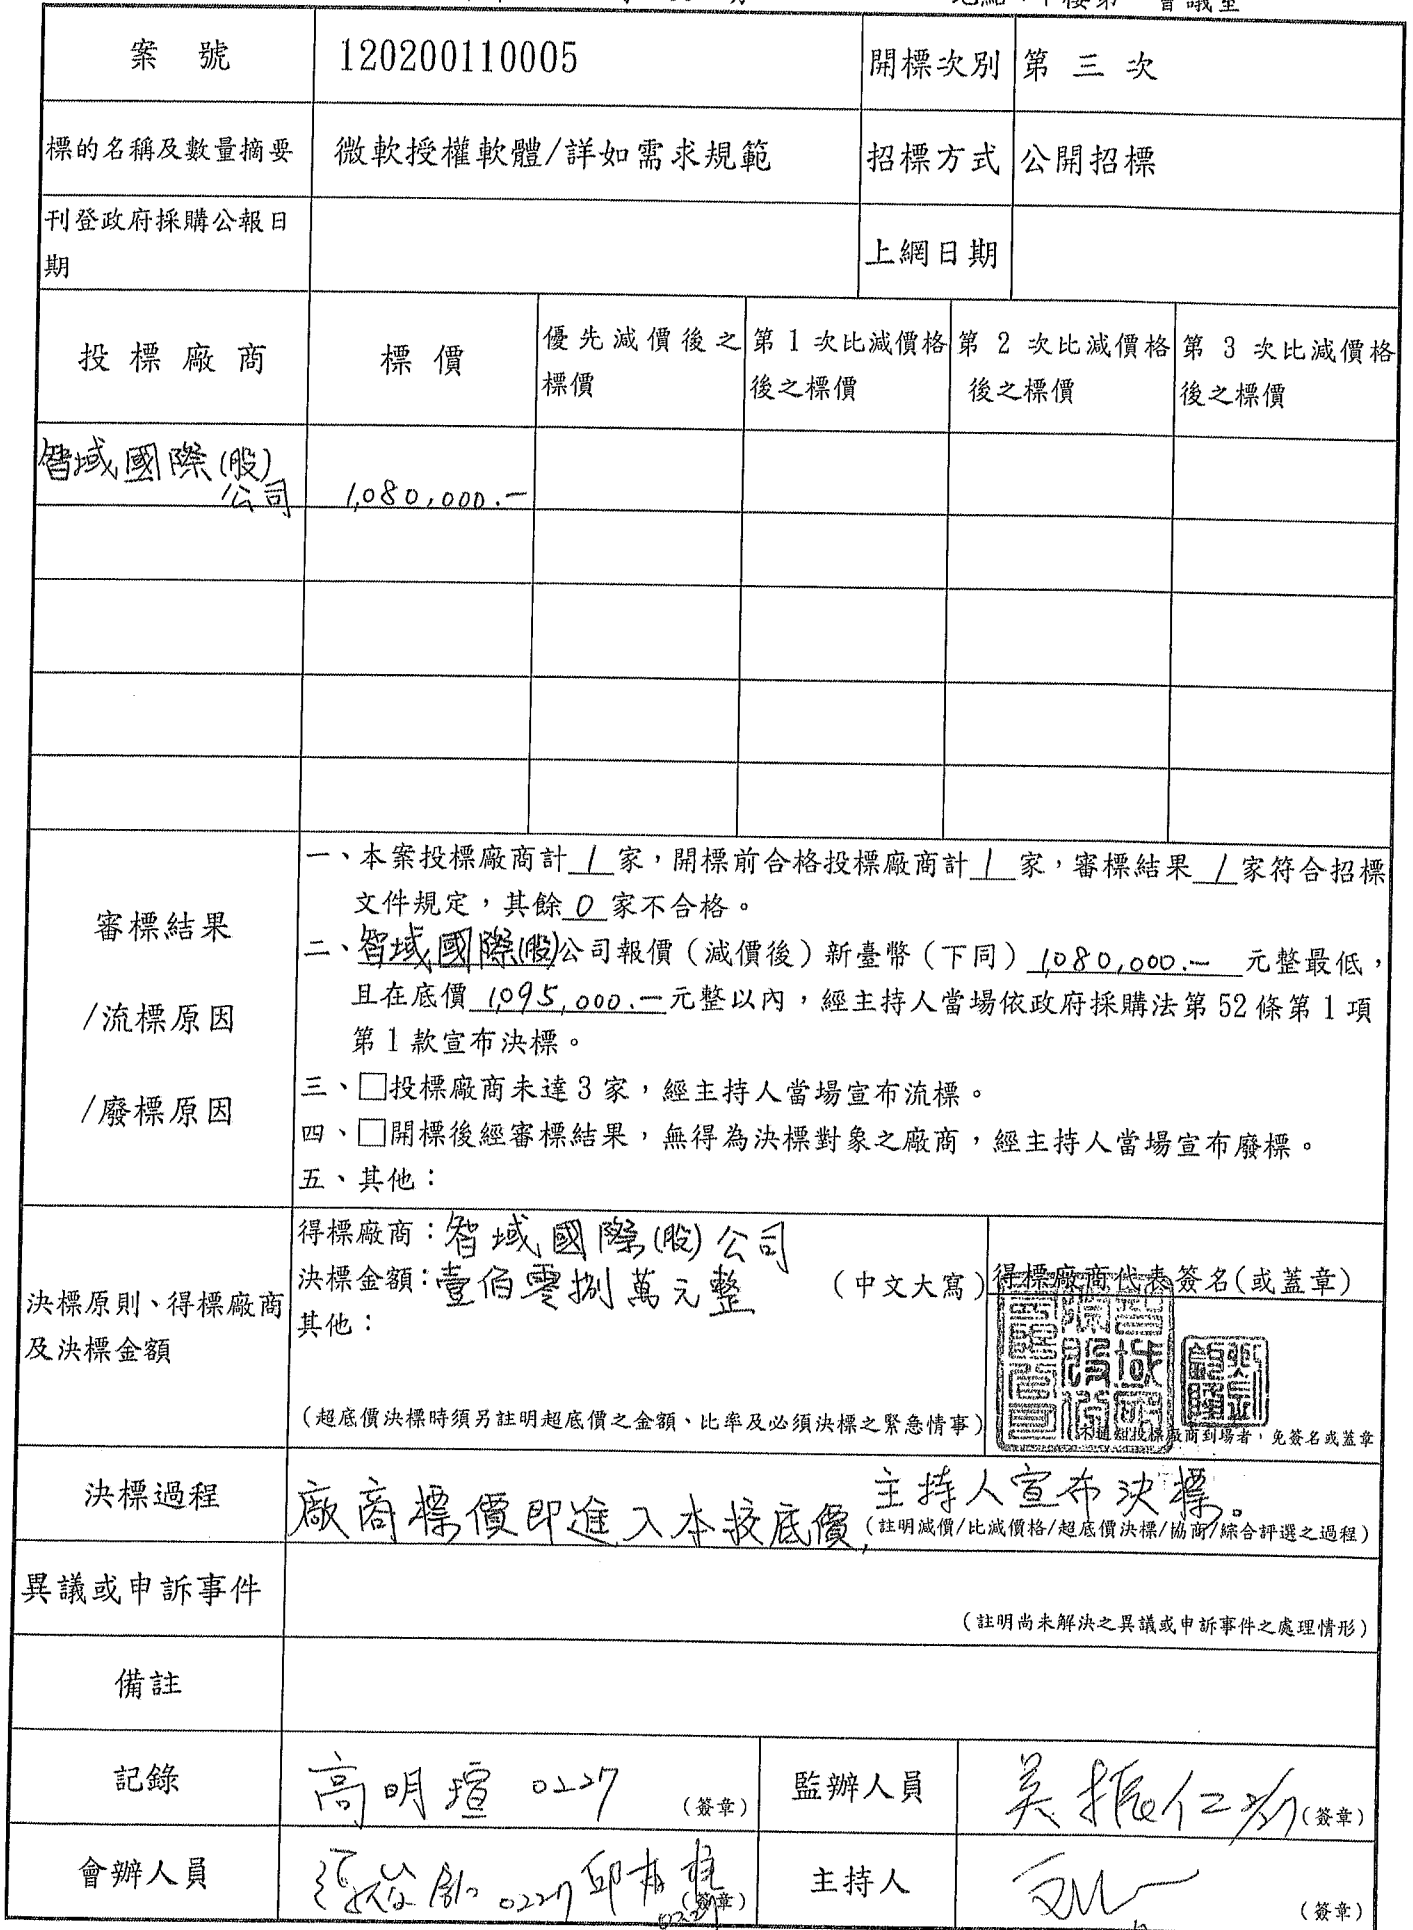 案號 120200110005 開標次別 第三次
標的名稱及數量摘要 微軟授權軟體/詳如需求規範 招標方式 公開招標
刊登政府採購公報日
期
上網日期
投標廠商 標價
優先減價後之
標價
第1次比減價格
後之標價
第2次比減價格
後之標價
第3次比減價格
後之標價
智域國際(股)
公司 1,080,000.-
審標結果
/流標原因
/廢標原因
一、本案投標廠商計1家,開標前合格投標廠商計1家,審標結果1家符合招標
文件規定,其餘0家不合格。
二、智域國際(股)公司報價(減價後)新臺幣(下同)1,080,000.-元整最低,
且在底價1,095,000.-元整以內,經主持人當場依政府採購法第52條第1項
第1款宣布決標。
三、□投標廠商未達3家,經主持人當場宣布流標。
四、□開標後經審標結果,無得為決標對象之廠商,經主持人當場宣布廢標。
五、其他:
決標原則、得標廠商
及決標金額
得標廠商:智域國際(股)公司
決標金額:壹佰零捌萬元整 (中文大寫)
其他:
(超底價決標時須另註明超底價之金額、比率及必須決標之緊急情事)
得標廠商代表簽名(或蓋章)
廠商到場者,免簽名或蓋章
決標過程
廠商標價即進入本校底價,主持人宣布決標。
(註明減價/比減價格/超底價決標/協商/綜合評選之過程)
異議或申訴事件
(註明尚未解決之異議或申訴事件之處理情形)
備註
記錄 高明瑄 0227 (簽章) 監辦人員 (簽章)
會辦人員 0227 (簽章) 主持人 (簽章)